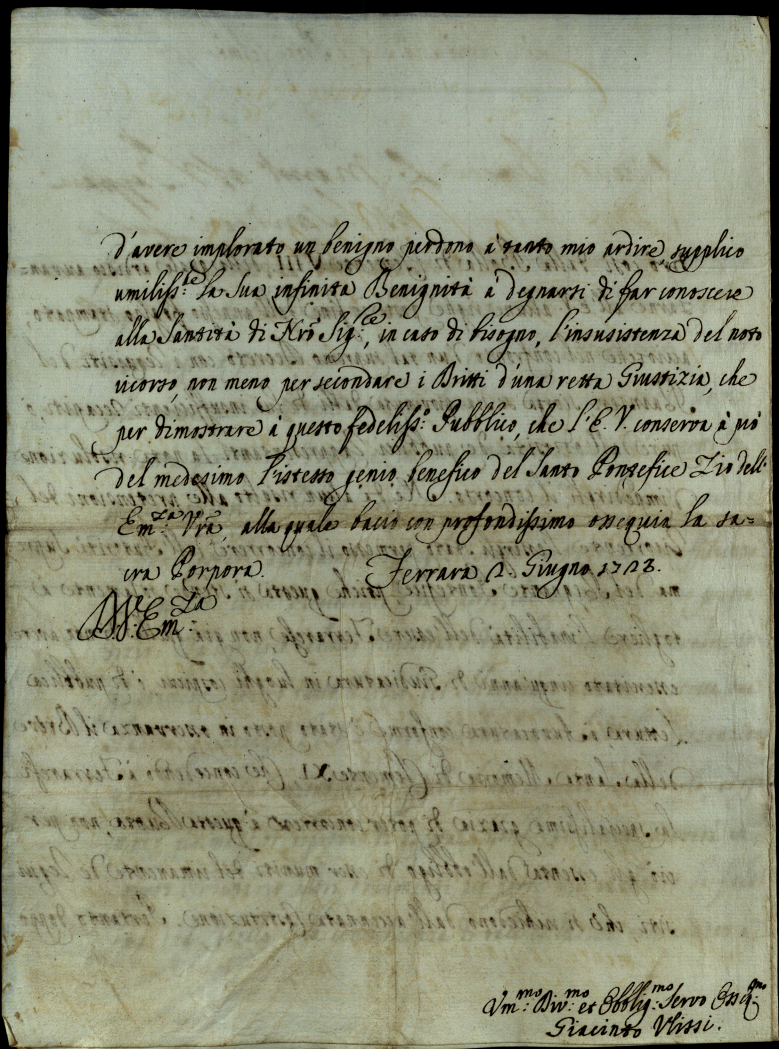 d'avere implorato un benigno perdono à tanto mio ardire, supplico
umiliss:te la Sua infinita Benignità à degnarsi di far conoscere
alla Santità di Nrõ Sig:re, in caso di bisogno, l'insusistenza del noto
ricorso, non meno per secondare i Dritti d'una retta Giustizia, che
per dimostrare à questo fedeliss:o Pubblico, che l'E. V. conserva à prò
del medesimo l'istesso genio benefico del Santo Pontefice Zio dell'
Em:za Vrã, alla quale bacio con profondissimo ossequio la sa=
cra Porpora. Ferrara 2. Giugno 1728.
Em:za
Um:mo Div:mo et Obblig:mo Servo Osseq:mo
Giacinto Ulissi.